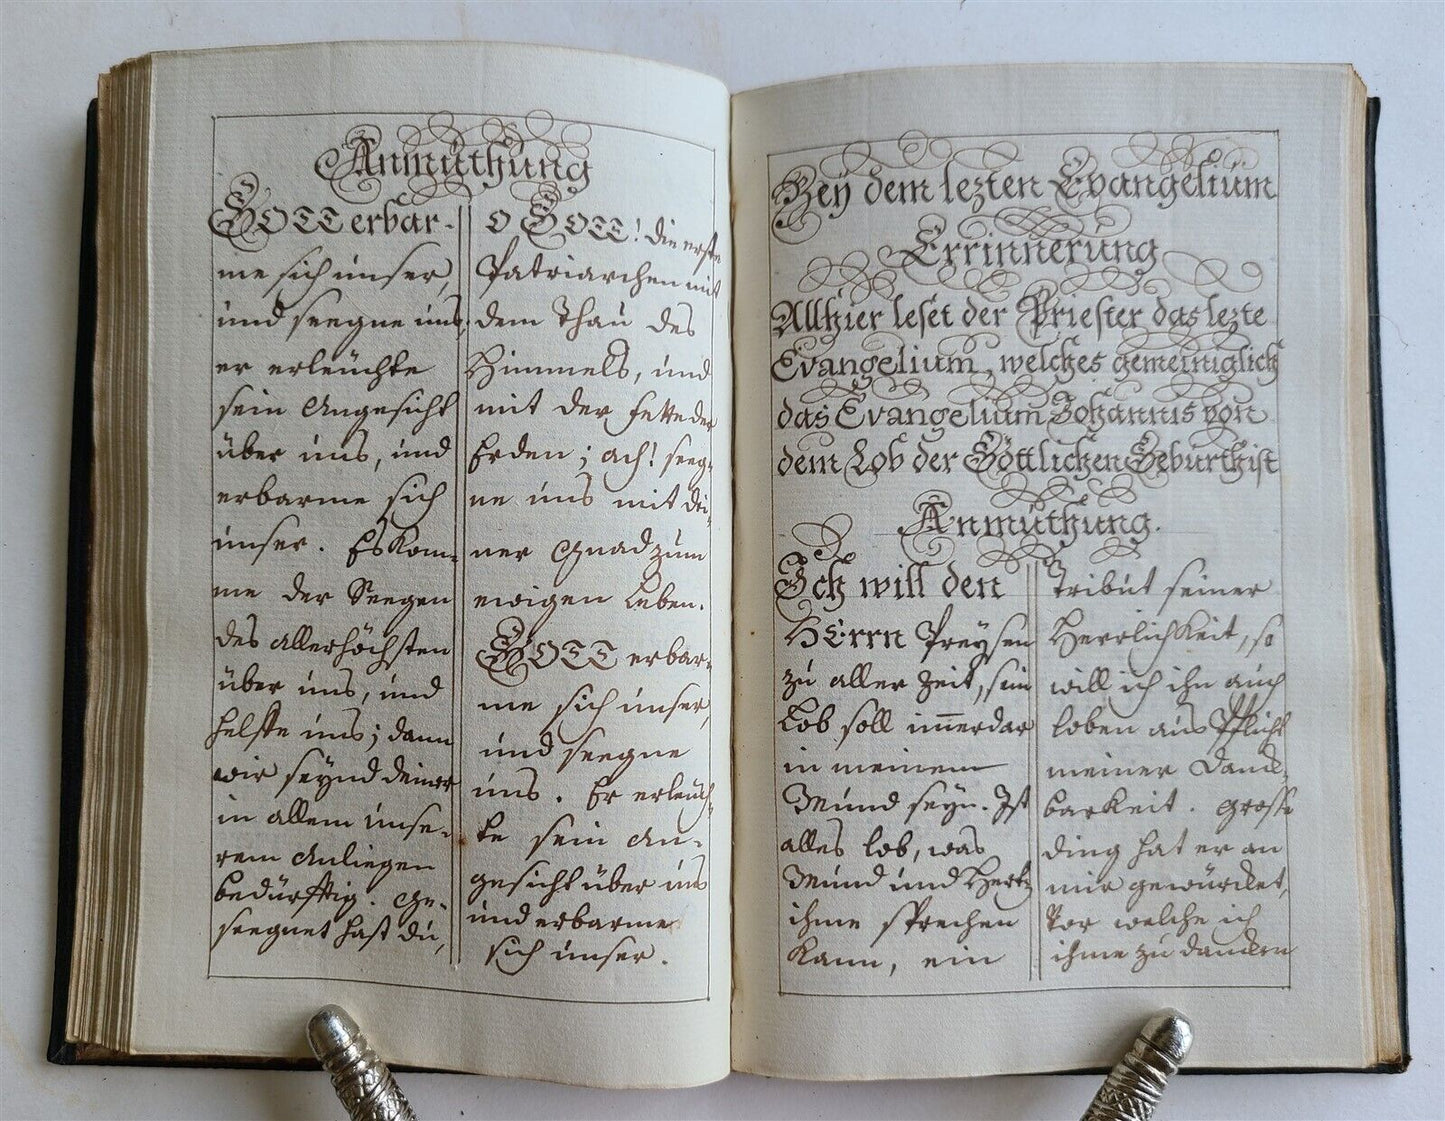 Anmüthüng
GOTT erbar-
me sich ünser,
ünd seegne üns,
er erleüchte
sein Angesicht
über üns, ünd
erbarme sich
ünser. Es kom-
me der Seegen
des allerhöchsten
über üns, ünd
helffe üns; dann
wir seynd deiner
in allem ünse-
rem Anliegen
bedürfftig. Ge-
seegnet hast dü,
O GOTT! die erste
Patriarchen mit
dem Thaü des
Himmels, ünd
mit der Fette der
Erden; ach! seeg-
ne üns mit dei-
ner Gnad züm
ewigen Leben.
GOTT erbar-
me sich ünser,
ünd seegne
üns. Er erleüch-
te sein An-
gesicht über üns
ünd erbarme
sich ünser.
Bey dem lezten Evangeliüm
Errinnerüng
Allhier leset der Priester das lezte
Evangelium, welches gemeiniglich
das Evangeliüm Johannis von
dem Lob der Göttlichen Gebürth ist
Anmüthüng.
Ich will den
HErrn Preysen
zü aller Zeit, sein
Lob soll im̅erdar
in meinem
Münd seyn. Ist
alles Lob, was
Münd ünd Hertz
ihme sprechen
kann, ein
Tribüt seiner
Herrlichkeit, so
will ich ihn aüch
loben aüs Pflicht
meiner Danck-
barkeit. Grosse
ding hat er an
mir gewürcket,
Vor welche ich
ihme zü dancken